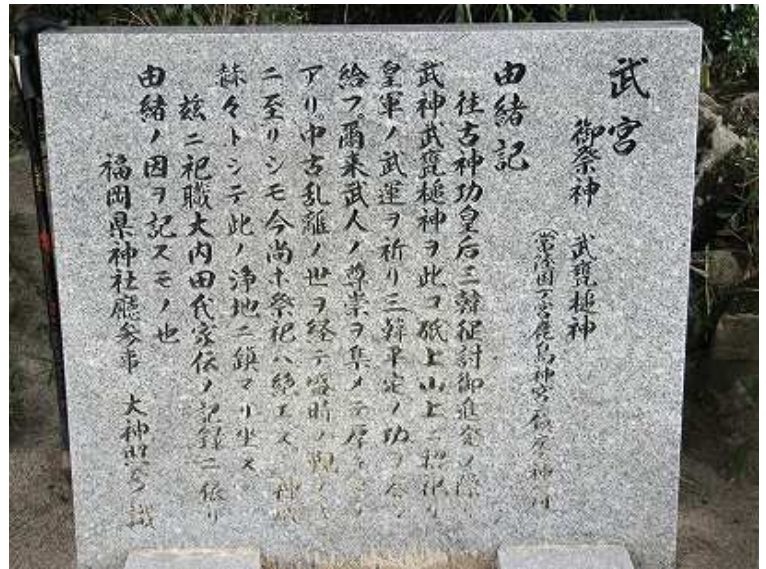 武宮
御祭神 武甕槌神
(常陸国一宮鹿島神宮御祭神
由緒記
往古神功皇后三韓征討御進発ノ際
武神武甕槌神ヲ此コ砥上山上ニ招祀リ
皇軍ノ武運ヲ祈リ三韓平定ノ功ヲ
給フ爾来武人ノ尊崇ヲ集メテ
アリ中古乱離ノ世ヲ経テ盛時ノ
ニ至リシモ今尚ホ祭祀ハ絶エス 神威
赫々トシテ此ノ浄地ニ鎮マリ坐ス
茲ニ祀職大内田代家伝ノ記録ニ依リ
由緒ノ因ヲ記スモノ也
福岡県神社廳参事 大神 識